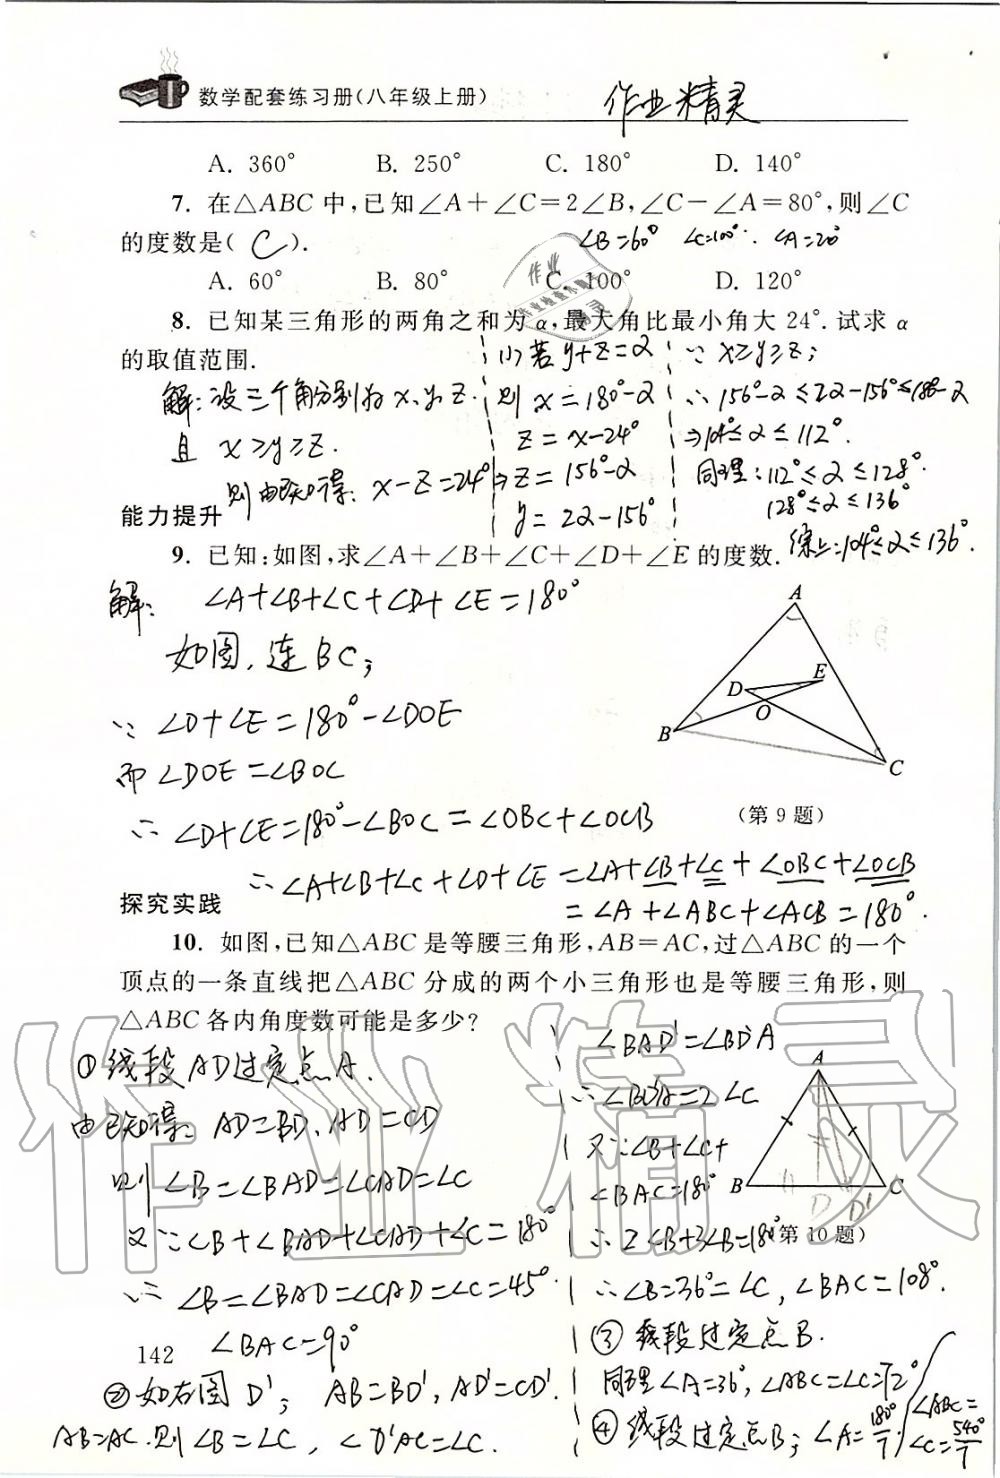 数学配套练习册(八年级上册)
作业精灵
A. 360° B. 250° C. 180° D. 140°
7. 在△ABC中,已知∠A+∠C=2∠B,∠C-∠A=80°,则∠C
的度数是( C ).
∠B=60° ∠C=100°. ∠A=20°
A. 60° B. 80° C. 100° D. 120°
8. 已知某三角形的两角之和为α,最大角比最小角大 24°. 试求 α
的取值范围.
解:设三个角分别为 x、y、z.
且 x≥y≥z.
则由已知得: x-z=24°
(1)若 y+z=α
则 x=180°-α
z=x-24°
⇒z=156°-α
y=2α-156°
∵ x≥y≥z;
∴156°-α≤2α-156°≤180°-α
⇒104°≤α≤112°.
同理:112°≤α≤128°.
128°≤α≤136°
综上:104°≤α≤136°.
能力提升
9. 已知:如图,求∠A+∠B+∠C+∠D+∠E的度数.
解: ∠A+∠B+∠C+∠D+∠E=180°
如图,连BC;
∵ ∠D+∠E=180°-∠DOE
而∠DOE=∠BOC
∴ ∠D+∠E=180°-∠BOC=∠OBC+∠OCB
∴∠A+∠B+∠C+∠D+∠E=∠A+∠B+∠C+∠OBC+∠OCB
=∠A+∠ABC+∠ACB=180°.
A
D
E
O
B
C
(第9题)
探究实践
10. 如图,已知△ABC是等腰三角形,AB=AC,过△ABC的一个
顶点的一条直线把△ABC分成的两个小三角形也是等腰三角形,则
△ABC各内角度数可能是多少?
①线段AD过定点A.
由已知得: AD=BD、AD=CD
则∠B=∠BAD=∠CAD=∠C
又∵∠B+∠BAD+∠CAD+∠C=180°
∴ ∠B=∠BAD=∠CAD=∠C=45°
∠BAC=90°
②如右图D'; AB=BD',AD'=CD'.
AB=AC.则∠B=∠C, ∠D'AC=∠C.
∠BAD'=∠BD'A
∴∠BD'A=2∠C
又∵∠B+∠C+
∠BAC=180°
∴2∠B+3∠B=180°
∴∠B=36°=∠C,∠BAC=108°.
③线段过定点B.
同理∠A=36°,∠ABC=∠C=72°
④线段过定点B;∠A=180°/7.
∠ABC=
∠C=540°/7
A
B
D
D'
C
(第10题)
142
作业精灵